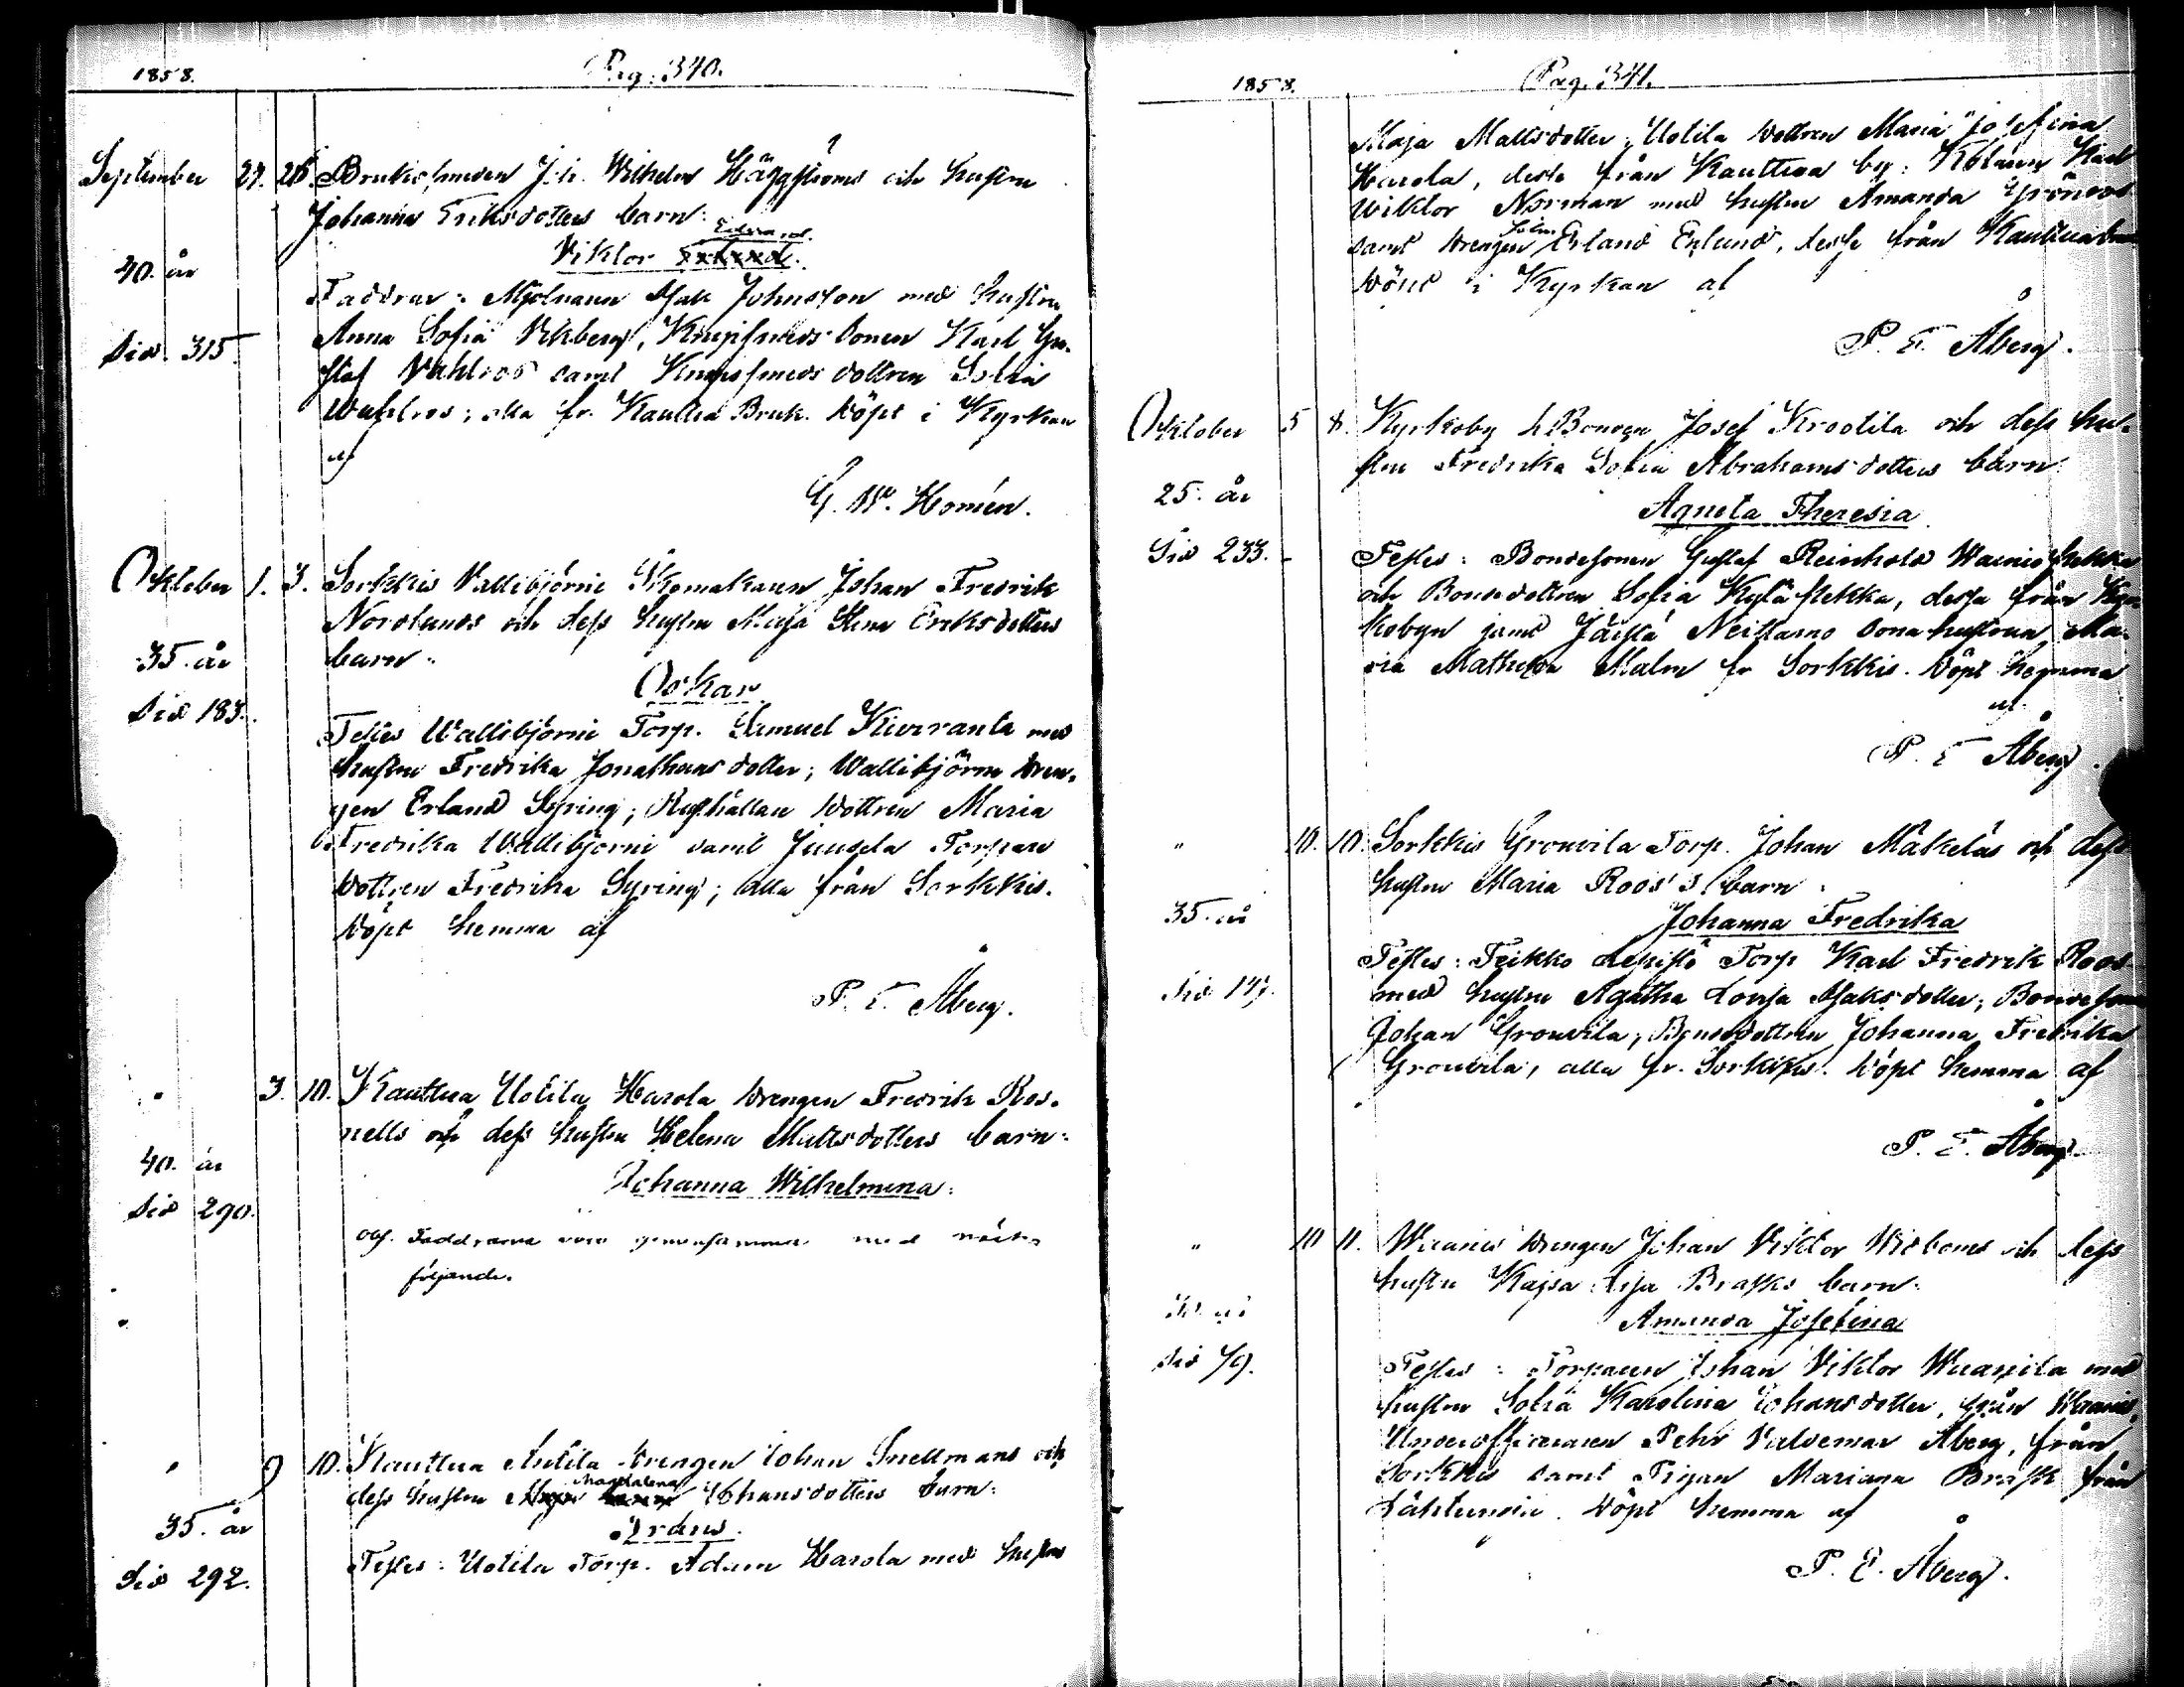 1858.
Pag. 340.
September 27. 28. Bruks smeden Joh. Wilhelm Häggströms och hustru
Johanna Eriksdotters barn:
Edvard.
Viktor
40. år
Faddrar: Mjölnaren Isak Johnsson med hustru
Anna Sofia Vikberg, Knipsmeds sonen Karl Gu-
Sid. 315.
staf Vahlroos samt Knipsmeds dottren Sofia
Wahlroos; alla fr. Kauttua Bruk. Döpt i Kyrkan
af
G. W. Homén.
Oktober 1. 3. Sorkkis Vallibjörni Skomakaren Johan Fredrik
Nordlunds och dess hustru Maja Stina Eriksdotters
35. år barn:
Oskar
Sid 183.
Testes Wallibjörni Torp. Samuel Kiviranta med
hustru Fredrika Jonathansdotter; Wallibjörni dren-
gen Erland Syring; Rusthållare dottren Maria
Fredrika Wallibjörni samt Juusela Torpare
dottren Fredrika Syring; alla från Sorkkis.
Döpt hemma af
P. E. Åberg.
" 3. 10. Kauttua Uotila Harola drengen Fredrik Ros-
nells och dess hustru Helena Mattsdotters barn:
40. år
Johanna Wilhelmina.
Sid 290.
Obs. Faddrarna äro gemensamma med nästa
följande.
" 9 10. Kauttua Anttila drengen Johan Snellmans och
Magdalena
dess hustru Johansdotters barn:
35. år
Frans.
Testes: Uotila Torp. Adam Harola med hustru
Sid 292.
1858.
Pag. 341.
Maja Mattsdotter, Uotila dottren Maria Josefina
Harola, desse från Kauttua by: Kolaren Karl
Wiktor Norman med hustru Amanda Grönroos
samt drengen Erland Enlund, desse från Kauttua bruk
Döpt i Kyrkan af
P. E. Åberg.
Oktober 5 8. Kyrkoby Bonden Josef Krootila och dess hu-
stru Fredrika Sofia Abrahamsdotters barn:
25. år
Agneta Theresia
Sid 233.
Testes: Bondesonen Gustaf Reinhold Wainio Pekka
och Bondedottren Sofia Kylä Pekka, dessa från Kyr-
kobyn samt Neitsamo sona hustrun Ma-
ria Mathilda Malm fr Sorkkis. Döpt hemma
af
P. E. Åberg.
" 10. 10. Sorkkis Grouvila Torp. Johan Mäkeläs och dess
hustru Maria Roos's barn:
35. år
Johanna Fredrika
Testes: Torp Karl Fredrik Roos
Sid 147.
med hustru Agatha Lovisa Isaksdotter; Bondesonen
Johan Grouvila, Bondedottren Johanna Fredrika
Grouvila, alla fr. Sorkkis. Döpt hemma af
P. E. Åberg.
" 10 11. Wuanis drengen Johan Viktor Widboms och dess
hustru Kajsa Brasks barn:
Amanda Josefina
Testes: Torparen Johan Viktor Wuanila med
hustru Sofia Karolina Johansdotter, från Wuanis,
Underofficeraren Pehr Valdemar Åberg, från
Sorkkis samt Pigan Mariana Brask från
Döpt hemma af
P. E. Åberg.